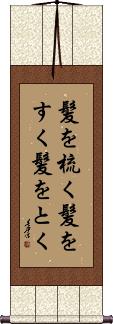 髪を梳く髪を
すく髪をとく